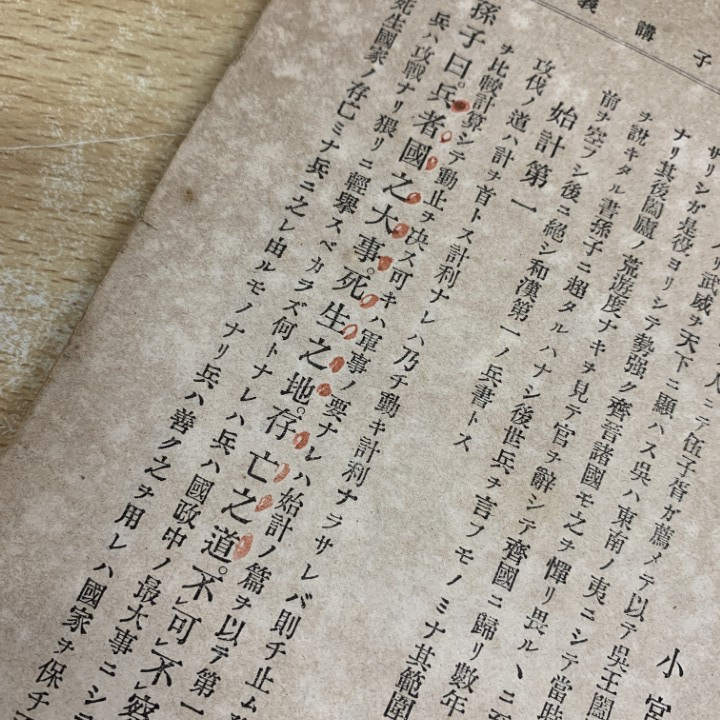 子講義
小宮
人ニテ伍子胥ガ薦メテ以テ吳王闔
サリシガ是役ヨリシテ勢强ク齊晉諸國モ之ヲ憚リ畏ルヽニ至
ナリ其後闔廬ノ荒遊度ナキヲ見テ官ヲ辭シテ齊國ニ歸リ數年
ヲ說キタル書孫子ニ超タルハナシ後世兵ヲ言フモノミナ其範圍
前ヲ空フシ後ニ絕シ和漢第一ノ兵書トス
始計第一
攻伐ノ道ハ計ヲ首トス計利ナレハ乃チ動キ計利ナラサレバ則チ止ム
ヲ比較計算シテ動止ヲ決ス可キハ軍事ノ要ナレハ始計ノ篇ヲ以テ第一
孫子曰。兵者國之大事。死生之地。存亡之道。不可不察
兵ハ攻戰ナリ猥リニ輕擧スベカラズ何トナレハ兵ハ國政中ノ最大事ニシテ
死生國家ノ存亡ミナ兵ニ之レ由ルモノナリ兵ハ善ク之ヲ用レハ國家ヲ保チ